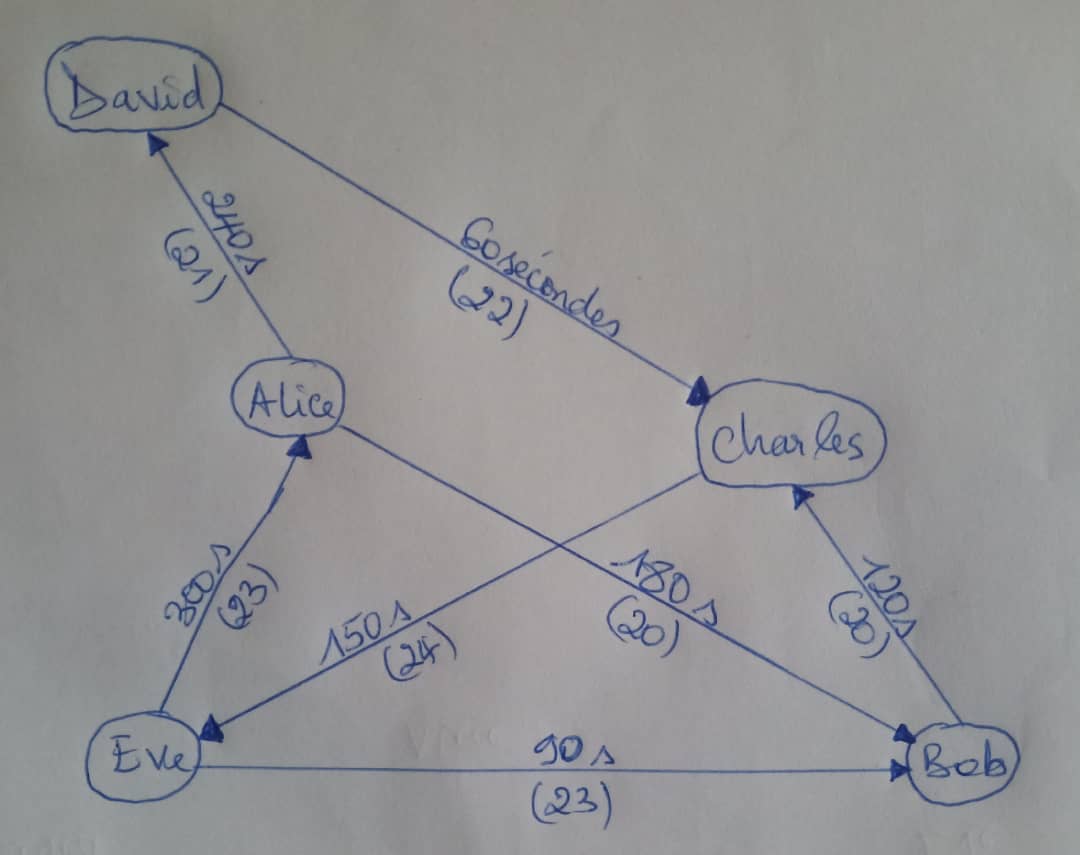 David
240 s
(21)
60 sécondes
(22)
Alice
Charles
300 s
(23)
150 s
(24)
180 s
(20)
120 s
(20)
Eve
90 s
(23)
Bob